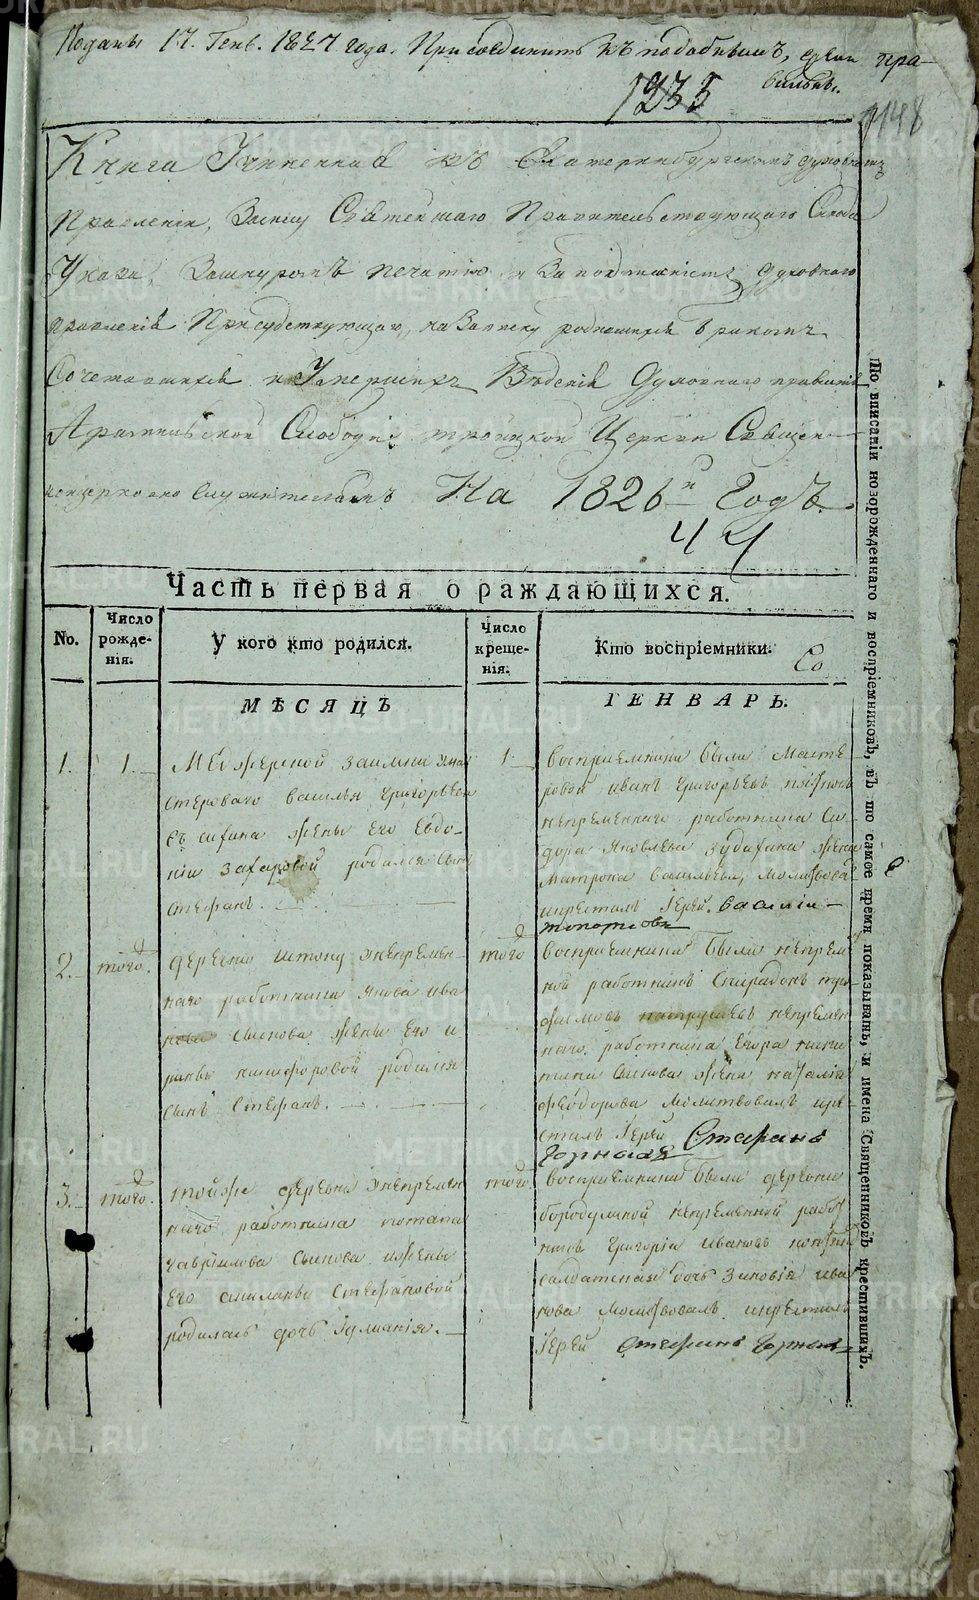 Поданы 17. Генв. 1827 года. Присоединить къ подобнымъ, если пра-
вильны.
1235
1148
Книга Учиненная въ Екатеринбургскомъ духовномъ
Правленіи, Всилу Святейшаго Правительствующаго Синода
Указа, Зашнуромъ печатію и Заподписаніемъ духовнаго
правленія Присудствующаго, на Записку родившихся бракомъ
Сочетавшихся и Умершихъ Вѣденія духовнаго правленія
Арамильской Слободы троицкой Церкви Священ-
ноцерковно Служителямъ На 1826й Годъ.
44
Часть первая о раждающихся.
No.
Число рожде-нія.
У кого кто родился.
Число креще-нія.
Кто воспріемники.
МѢСЯЦЪ
ГЕНВАРЬ.
1.
1.
стероваго василья григорьева
жены его Евдо-
кіи Захаровой родился сынъ
стефанъ.
1.
воспріемники были масте
ровой иванъ григорьевъ
непременнаго работника Си
дора Яковлева жена
матрона васильева, молитвовалъ
икрестилъ Іерей василій
топорковъ
2.
того.
деревни истоку непремен-
наго работника якова ива
нова сынова жены его и
рины никифоровой родился
сынъ Стефанъ.
того
воспріемники были непремен
ной работникъ Спиридонъ
непремен
наго работника Егора ники
тина сынова жена наталія
феодорова молитвовалъ икре
стилъ Іерей Стефанъ
Горныхъ
3.
того.
тойже деревни непремен
наго работника потапа
гаврилова сынова жены
его маланьи Стефановой
родилась дочь Іулианія.
того
воспріемники были деревни
бородулиной непременной рабо
никъ григорій ивановъ
солдатская дочь Зиновія ива
нова молитвовалъ икрестилъ
Іерей Стефанъ Горныхъ
По вписаніи новорожденнаго и воспріемниковъ, въ то самое время показывать, и имена Священниковъ крестившихъ.
METRIKI.GASO-URAL.RU